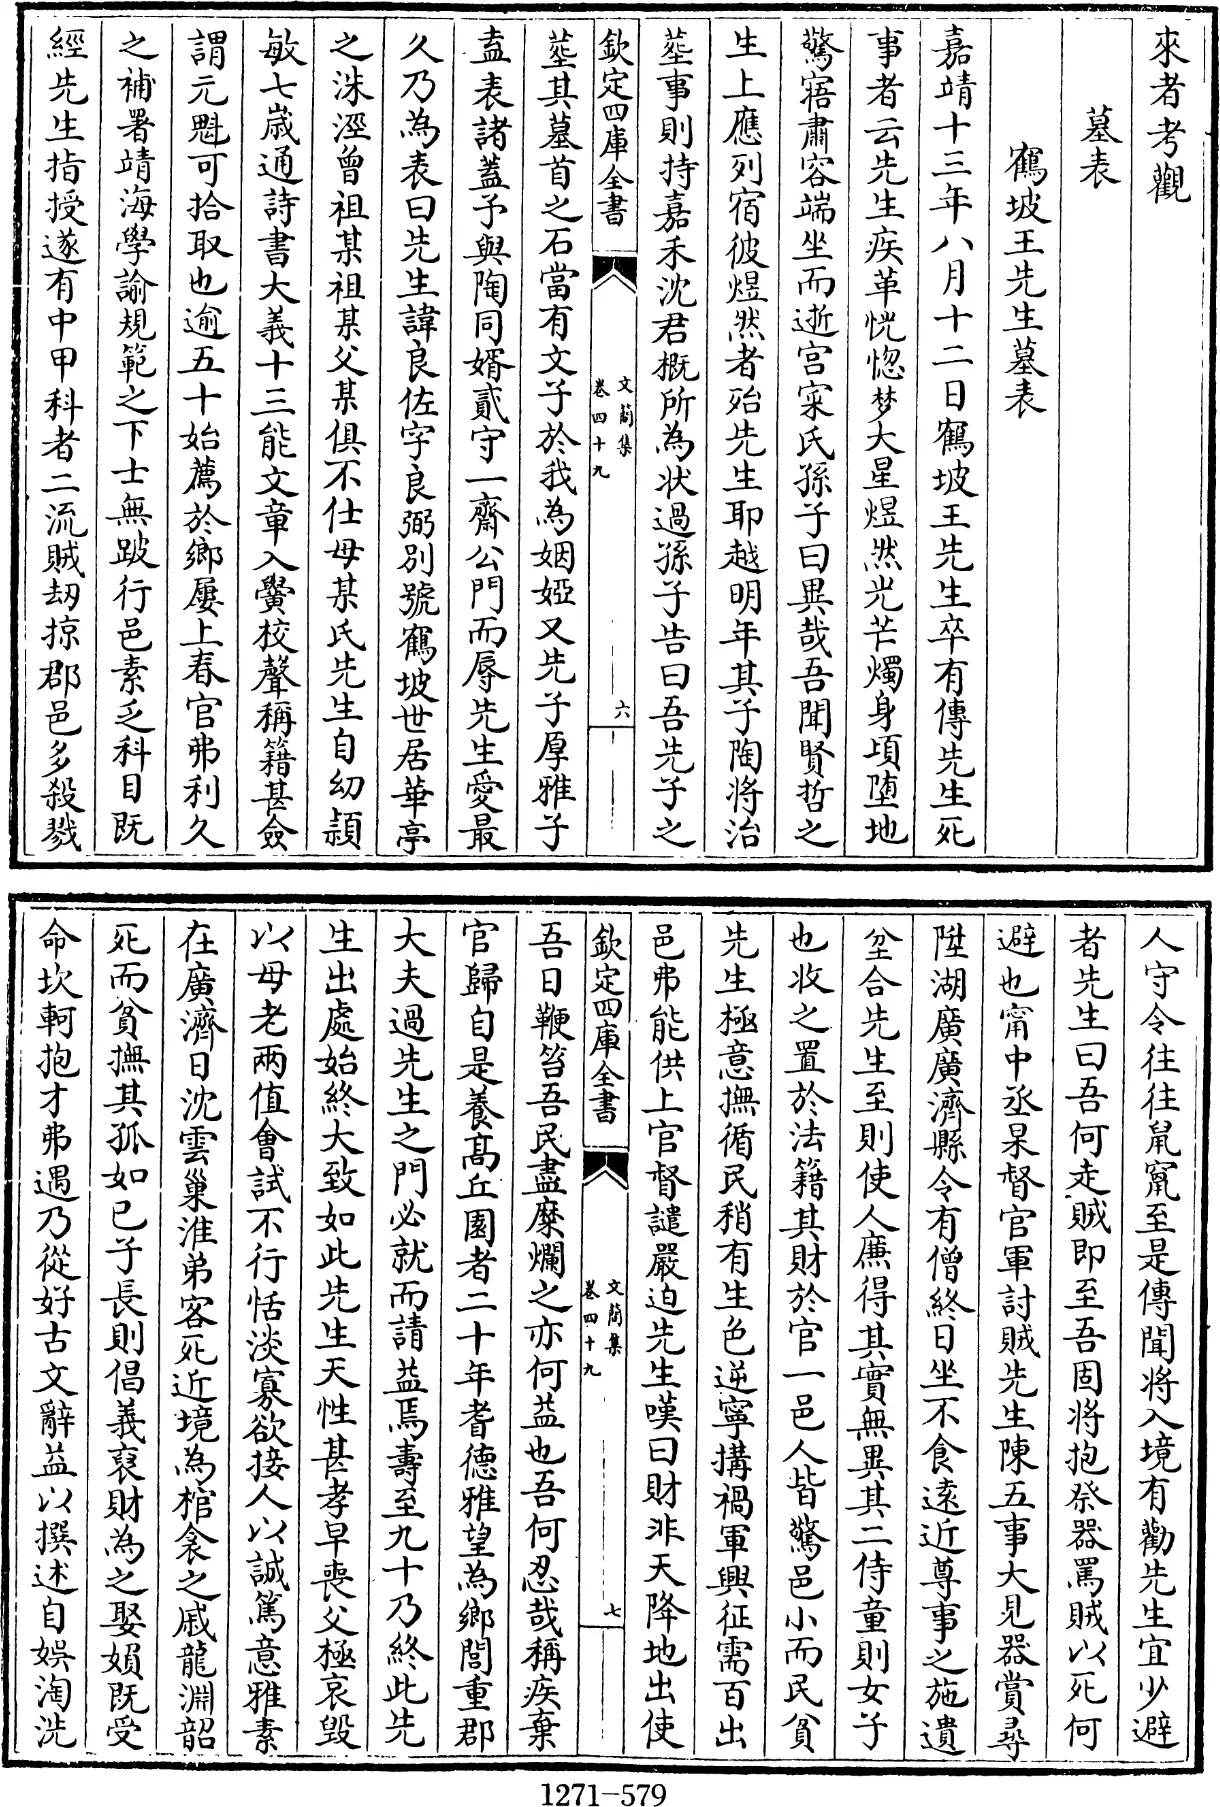 來者考觀
墓表
鶴坡王先生墓表
嘉靖十三年八月十二日鶴坡王先生卒有傳先生死
事者云先生疾革恍惚梦大星煜然光芒燭身項墮地
驚寤肅容端坐而逝宫寀氏孫子曰異哉吾聞賢哲之
生上應列宿彼煜然者殆先生耶越明年其子陶將治
塟事則持嘉禾沈君概所為状過孫子告曰吾先子之
欽定四庫全書
文簡集
卷四十九
六
塟其墓首之石當有文子於我為姻婭又先子厚雅子
盍表諸蓋予與陶同婿貳守一齋公門而辱先生愛最
久乃為表曰先生諱良佐字良弼別號鶴坡世居華亭
之洙涇曾祖某祖某父某俱不仕母某氏先生自幼頴
敏七歲通詩書大義十三能文章入黌校聲稱籍甚僉
謂元魁可拾取也逾五十始薦於鄉屢上春官弗利久
之補署靖海學諭規範之下士無跛行邑素乏科目既
經先生指授遂有中甲科者二流賊刧掠郡邑多殺戮
人守令往往鼠竄至是傳聞將入境有勸先生宜少避
者先生曰吾何走賊即至吾固將抱祭器罵賊以死何
避也甯中丞杲督官軍討賊先生陳五事大見器賞尋
陞湖廣廣濟縣令有僧終日坐不食遠近尊事之施遺
坌合先生至則使人亷得其實無異其二侍童則女子
也收之置於法籍其財於官一邑人皆驚邑小而民貧
先生極意撫循民稍有生色逆寧搆禍軍興征需百出
邑弗能供上官督譴嚴迫先生嘆曰財非天降地出使
欽定四庫全書
文簡集
卷四十九
七
吾日鞭笞吾民盡糜爛之亦何益也吾何忍哉稱疾棄
官歸自是養髙丘園者二十年耆德雅望為鄉閭重郡
大夫過先生之門必就而請益焉壽至九十乃終此先
生出處始終大致如此先生天性甚孝早喪父極哀毀
以母老兩值會試不行恬淡寡欲接人以誠篤意雅素
在廣濟日沈雲巢淮弟客死近境為棺衾之戚龍淵韶
死而貧撫其孤如已子長則倡義裒財為之娶嬪既受
命坎軻抱才弗遇乃從好古文辭益以撰述自娯淘洗
1271-579